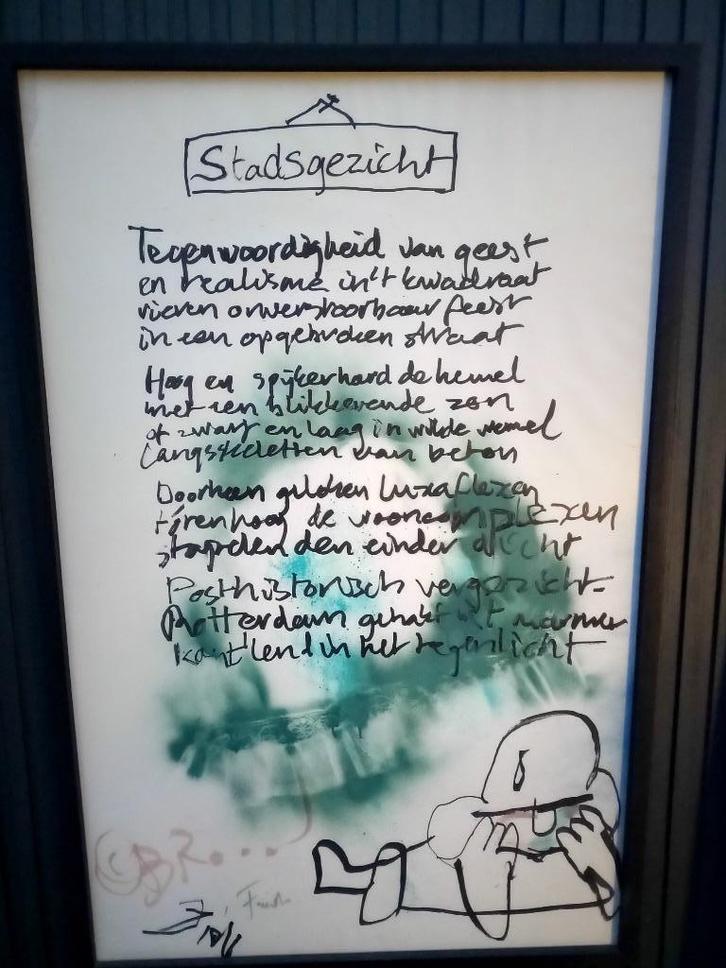 Stadsgezicht
Tegenwoordigheid van geest
en realisme in 't kwadraat
vieren onverstoorbaar feest
in een opgebroken straat
Hoog en spijkerhard de hemel
met een blikkerende zon
of zwart en laag in wilde wemel
langs skeletten van beton
Doorheen geloken luxaflexen
torenhoog de wooncomplexen
stapelen den einder dicht
Posthistorisch vergezicht
Rotterdam gehakt uit marmer
kant'lend in het tegenlicht